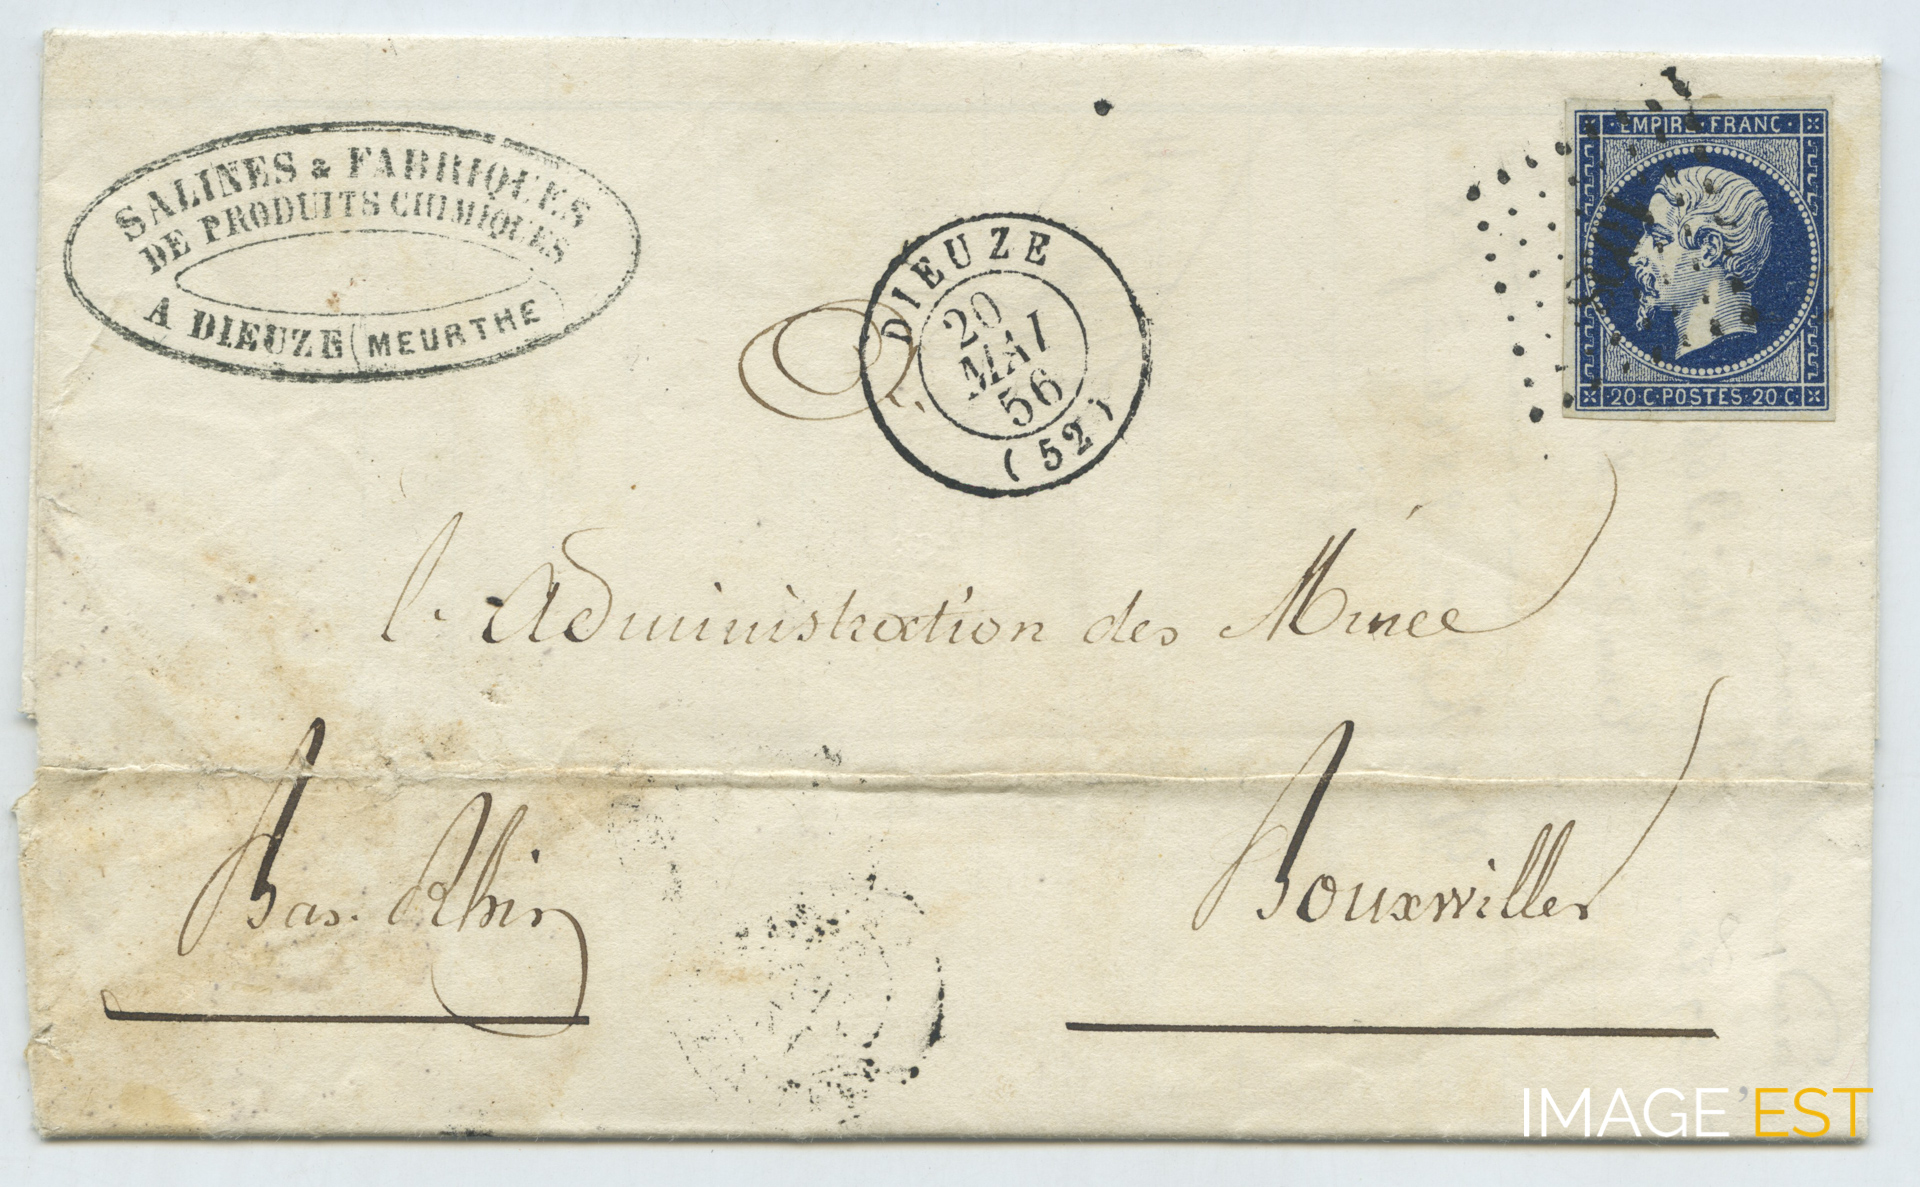 SALINES & FABRIQUES
DE PRODUITS CHIMIQUES
A DIEUZE (MEURTHE
DIEUZE
20
MAI
56
(52)
EMPIRE FRANC
20 C POSTES 20 C
l'Administration des Mines
Bas-Rhin
Bouxwiller
IMAGE EST